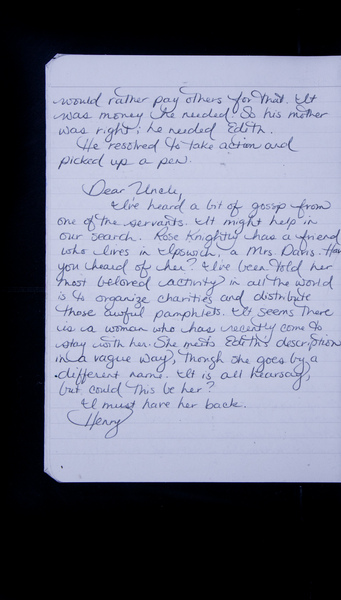 would rather pay others for that. It
was money he needed. So his mother
was right; he needed Edith.
He resolved to take action and
picked up a pen.
Dear Uncle,
I've heard a bit of gossip from
one of the servants. It might help in
our search. Rose Knightly has a friend
who lives in Ipswich, a Mrs. Davis. Have
you heard of her? I've been told her
most beloved activity in all the world
is to organize charities and distribute
those awful pamphlets. It seems there
is a woman who has recently come to
stay with her. She meets Edith's description
in a vague way, though she goes by a
different name. It is all hearsay,
but could this be her?
I must have her back.
Henry